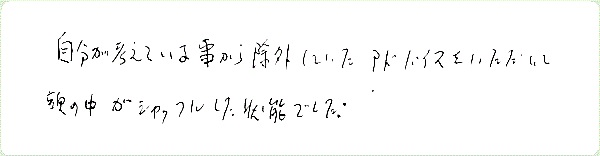 自分が考えている事から除外していたアドバイスをいただいて
頭の中がシャッフルした状態でした。